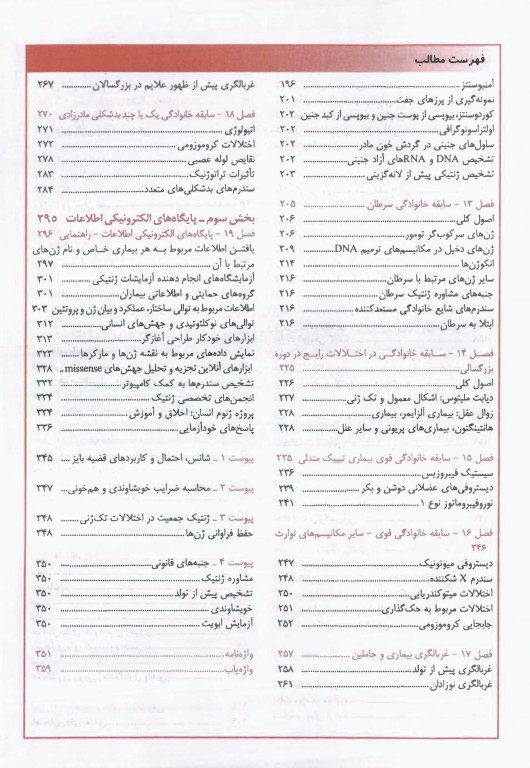 فهرست مطالب
آمنیوسنتز ........ ۱۹۶
نمونه‌گیری از پرزهای جفت ........ ۲۰۱
کوردوسنتز، بیوپسی از پوست جنین و بیوپسی از کبد جنین ۲۰۲
اولتراسونوگرافی ........ ۲۰۲
سلول‌های جنینی در گردش خون مادر ........ ۲۰۲
تشخیص DNA و RNAهای آزاد جنینی ........ ۲۰۲
تشخیص ژنتیکی پیش از لانه‌گزینی ........ ۲۰۳
فصل ۱۳ - سابقه خانوادگی سرطان ۲۰۵
اصول کلی ........ ۲۰۶
ژن‌های سرکوب‌گر تومور ........ ۲۰۶
ژن‌های دخیل در مکانیسم‌های ترمیم DNA ........ ۲۰۹
انکوژن‌ها ........ ۲۱۴
سایر ژن‌های مرتبط با سرطان ........ ۲۱۶
جنبه‌های مشاوره ژنتیک سرطان ........ ۲۱۶
سندرم‌های شایع خانوادگی مستعدکننده ........ ۲۱۶
ابتلا به سرطان ........ ۲۱۶
فصل ۱۴ - سابقه خانوادگی در اختلالات رایج در دوره
بزرگسالی ۲۲۵
اصول کلی ........ ۲۲۶
دیابت ملیتوس: اشکال معمول و تک ژنی ........ ۲۲۷
زوال عقل: بیماری آلزایمر، بیماری ........ ۲۲۸
هانتینگتون، بیماری‌های پریونی و سایر علل ........ ۲۲۸
فصل ۱۵ - سابقه خانوادگی قوی بیماری تیپیک مندلی ۲۳۵
سیستیک فیبروزیس ........ ۲۳۶
دیستروفی‌های عضلانی دوشن و بکر ........ ۲۳۹
نوروفیبروماتوز نوع ۱ ........ ۲۴۱
فصل ۱۶ - سابقه خانوادگی قوی - سایر مکانیسم‌های توارث
۲۴۶
دیستروفی میوتونیک ........ ۲۴۷
سندرم X شکننده ........ ۲۴۸
اختلالات میتوکندریایی ........ ۲۵۰
اختلالات مربوط به حک‌گذاری ........ ۲۵۱
جابجایی کروموزومی ........ ۲۵۲
فصل ۱۷ - غربالگری بیماری و حاملین ........ ۲۵۷
غربالگری پیش از تولد ........ ۲۵۸
غربالگری نوزادان ........ ۲۶۱
غربالگری پیش از ظهور علایم در بزرگسالان ........ ۲۶۷
فصل ۱۸ - سابقه خانوادگی یک یا چند بدشکلی مادرزادی ۲۷۰
اتیولوژی ........ ۲۷۱
اختلالات کروموزومی ........ ۲۷۲
نقایص لوله عصبی ........ ۲۷۸
تأثیرات تراتوژنیک ........ ۲۸۳
سندرم‌های بدشکلی‌های متعدد ........ ۲۸۴
بخش سوم ـ پایگاه‌های الکترونیکی اطلاعات ۲۹۵
فصل ۱۹ - پایگاه‌های الکترونیکی اطلاعات - راهنمایی ۲۹۶
یافتن اطلاعات مربوط به هر بیماری خاص و نام ژن‌های
مرتبط با آن ........ ۲۹۷
آزمایشگاه‌های انجام دهنده آزمایشات ژنتیکی ........ ۳۰۱
گروه‌های حمایتی و اطلاعاتی بیماران ........ ۳۰۱
اطلاعات مربوط به توالی ساختار، عملکرد و بیان ژن و پروتئین ۳۰۳
توالی‌های نوکلئوتیدی و جهش‌های انسانی ........ ۳۱۲
ابزارهای خودکار طراحی آغازگر ........ ۳۱۳
نمایش داده‌های مربوط به نقشه ژن‌ها و مارکرها ........ ۳۲۳
ابزارهای آنلاین تجزیه و تحلیل جهش‌های missense ... ۳۲۸
تشخیص سندرم‌ها به کمک کامپیوتر ........ ۳۳۲
انجمن‌های تخصصی ژنتیک ........ ۳۳۴
پروژه ژنوم انسان؛ اخلاق و آموزش ........ ۳۳۴
پاسخ‌های خودآزمایی ........ ۳۳۶
پیوست ۱ ـ شانس، احتمال و کاربردهای قضیه بایز ... ۳۴۵
پیوست ۲ ـ محاسبه ضرایب خویشاوندی و هم‌خونی ... ۳۴۷
پیوست ۳ ـ ژنتیک جمعیت در اختلالات تک‌ژنی ........ ۳۴۸
حفظ فراوانی ژن‌ها ........ ۳۴۸
پیوست ۴ ـ جنبه‌های قانونی ........ ۳۵۰
مشاوره ژنتیک ........ ۳۵۰
تشخیص پیش از تولد ........ ۳۵۰
خویشاوندی ........ ۳۵۰
آزمایش ابویت ........ ۳۵۰
واژه‌نامه ........ ۳۵۱
واژه‌یاب ........ ۳۵۹